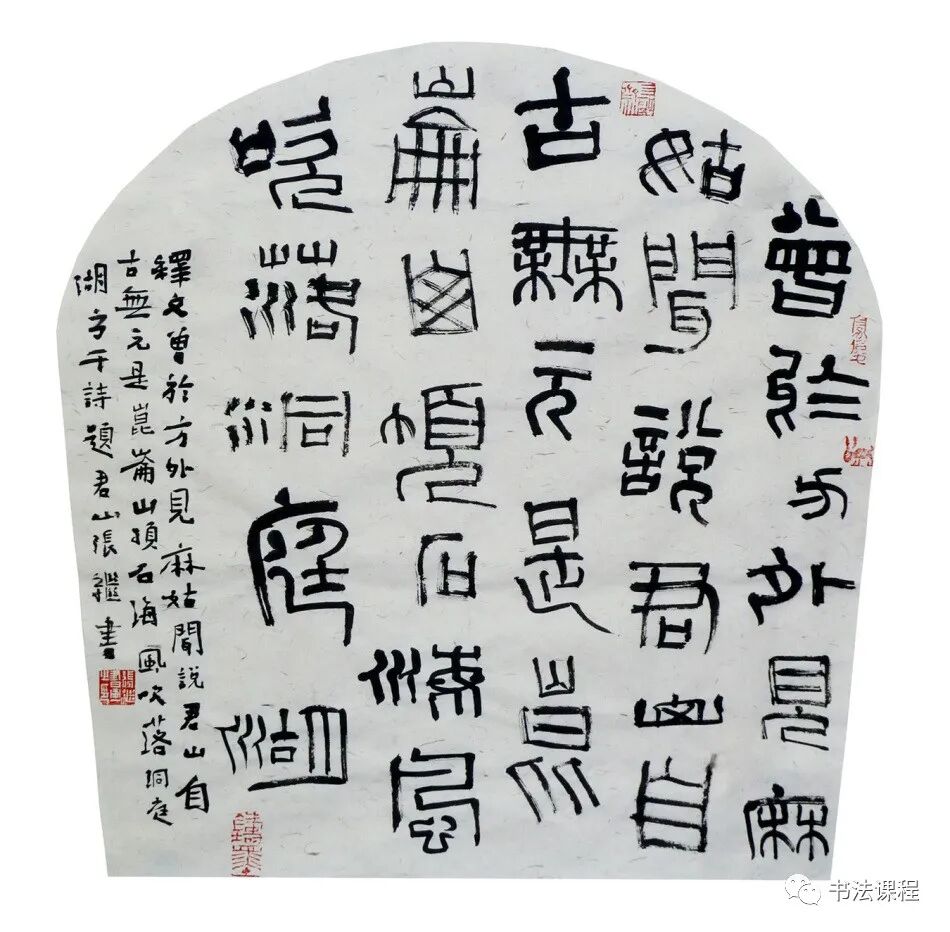 曾於方外見麻
姑聞說君山自
古無元是崑
崙山頂石海風
吹落洞庭湖
釋文曾於方外見麻姑聞說君山自
古無元是崑崙山頂石海風吹落洞庭
湖方干詩題君山張繼書
书法课程